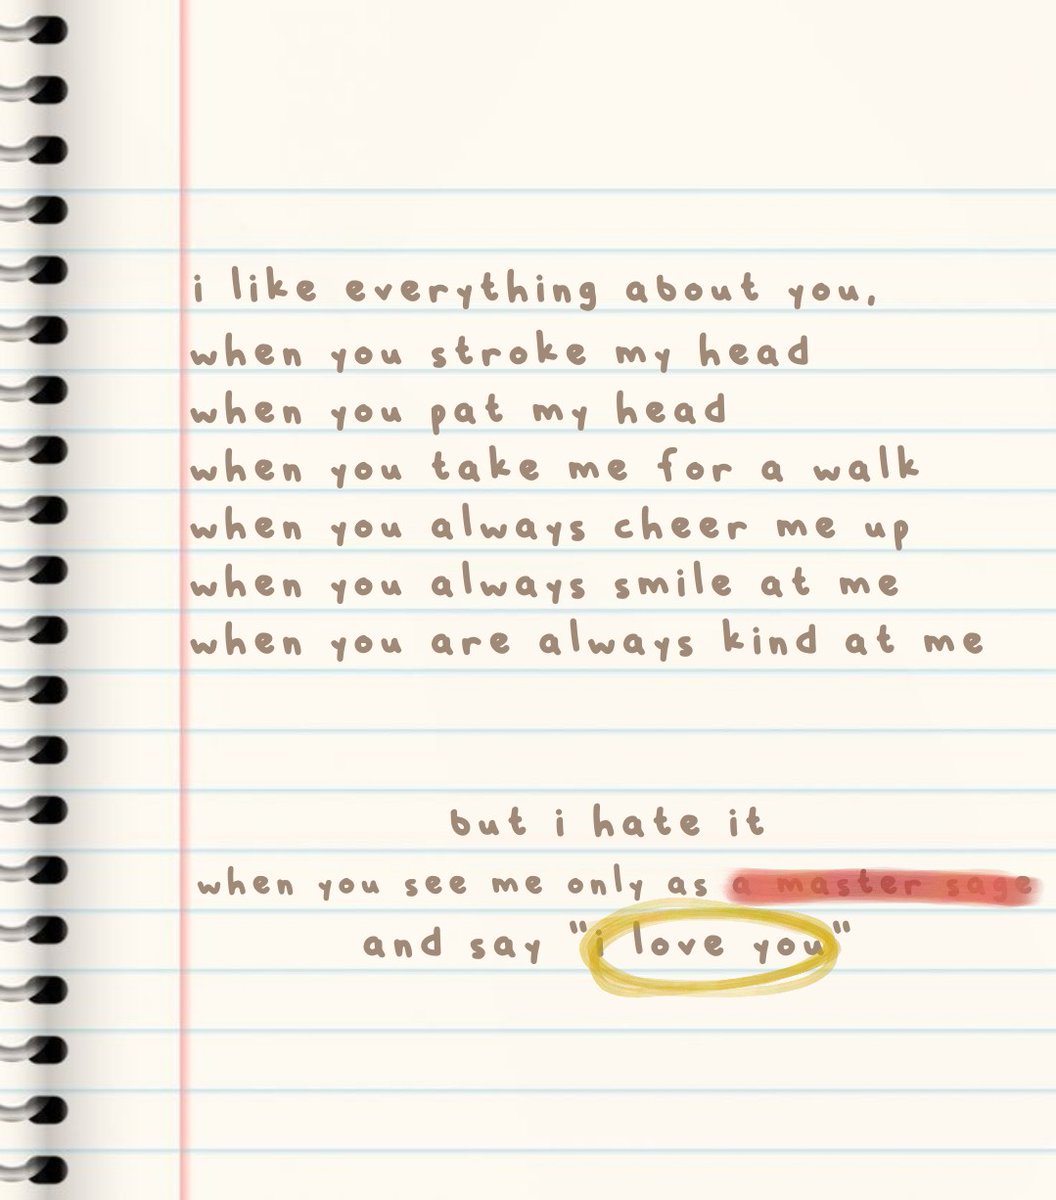 i like everything about you,
when you stroke my head
when you pat my head
when you take me for a walk
when you always cheer me up
when you always smile at me
when you are always kind at me
but i hate it
when you see me only as a master sage
and say "i love you"